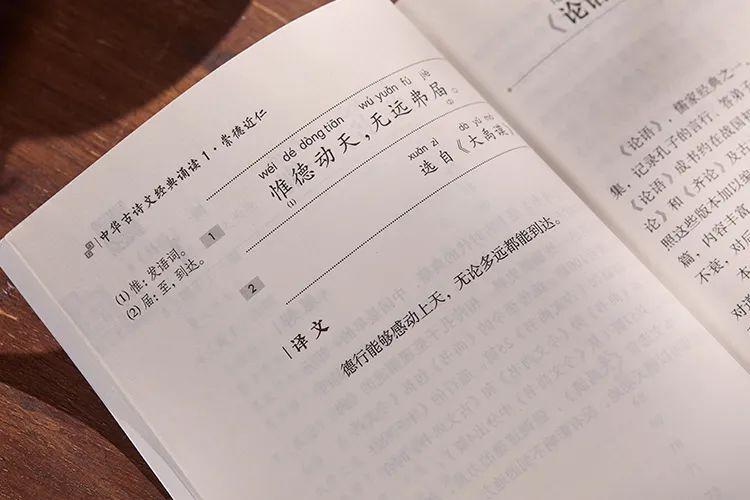 中华古诗文经典诵读1·崇德近仁
wéi dé dòng tiān wú yuǎn fú jiè
惟德动天，无远弗届。
(1) (2)
xuǎn zì dà yǔ mó
选自《大禹谟》
1
2
(1) 惟：发语词。
(2) 届：至，到达。
译文
德行能够感动上天，无论多远都能到达。
《论语
《论语》，儒家经典之一，
记录孔子的言行，答弟
集，《论语》成书约在战国
论》和《齐论》及古
照这些版本加以参
篇，内容丰富
不衰，对后
本
对道